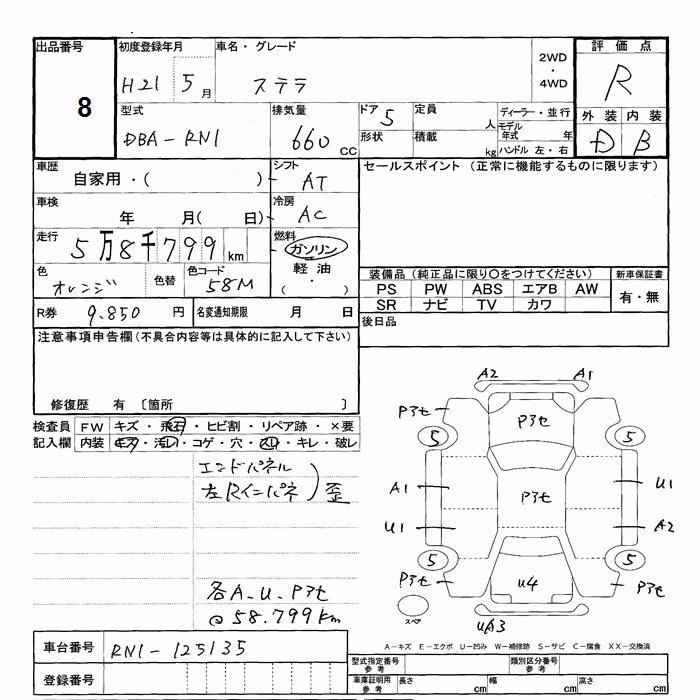 出品番号 初度登録年月 車名・グレード 評価点
8
H21 5月 ステラ 2WD・4WD R
型式 排気量 ドア 定員 ディーラー・並行 外装 内装
DBA-RN1 660 CC 5 人 モデル年式 年 D B
形状 積載 kg ハンドル 左・右
車歴 シフト セールスポイント (正常に機能するものに限ります)
自家用・( ) AT
車検 冷房
年 月( 日) AC
走行 燃料
5万8千799km ガソリン
色 色替 色コード 軽油
オレンジ 58M (・)
装備品 (純正品に限り○をつけてください) 新車保証書
PS PW ABS エアB AW 有・無
SR ナビ TV カワ
R券 9.850円 名変通知期限 月 日 後日品
注意事項申告欄(不具合内容等は具体的に記入して下さい)
修復歴 有 〔箇所 〕
検査員 FW キズ・飛石・ヒビ割・リペア跡・×要
記入欄 内装 キズ・汚レ・コゲ・穴・スレ・キレ・破レ
エンドパネル
左Rインパネ) 歪
各A-U-Pアセ
@58.799km
A2 A1
Pアセ Pアセ
5 5
A1 Pアセ U1
U1 A2
5 5
Pアセ U4 Pアセ
スペア UA3
A-キズ E-エクボ U-凹み W-補修跡 S-サビ C-腐食 XX-交換済
車台番号 RN1-125135
登録番号
型式指定番号 参考 類別区分番号 参考
車庫証明用 参考 長さ cm 幅 cm 高さ cm